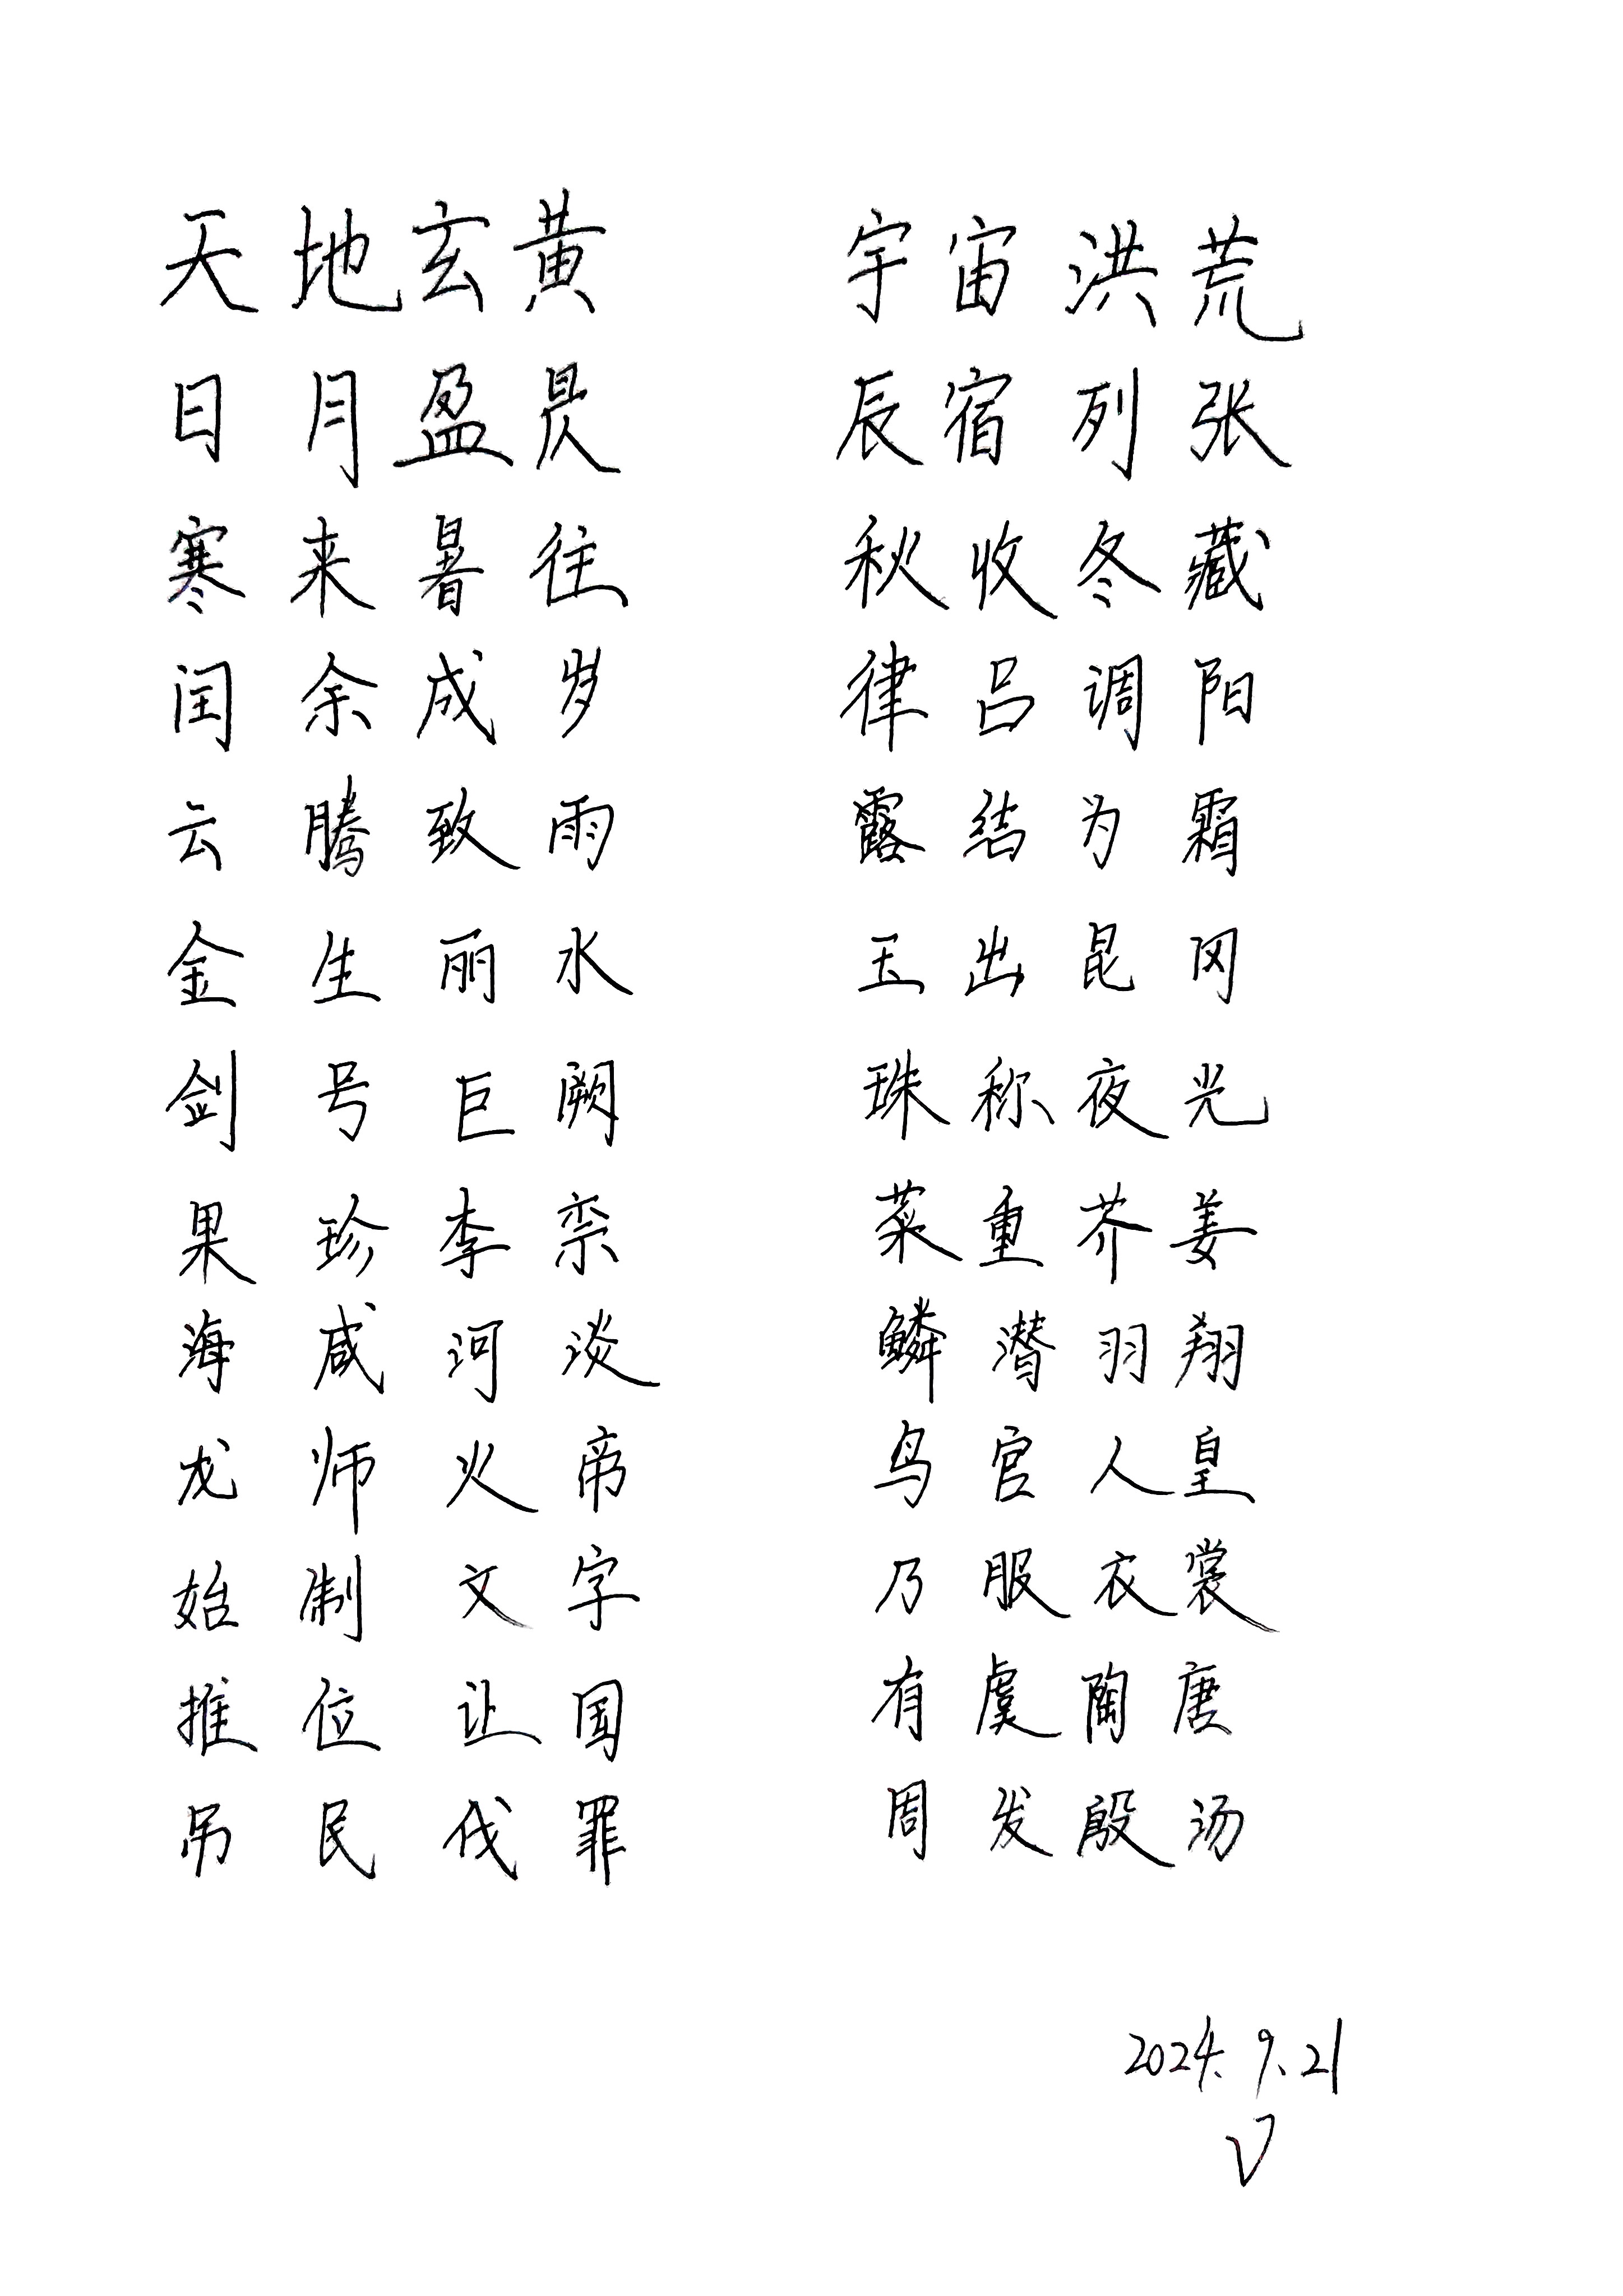 天地玄黄 宇宙洪荒
日月盈昃 辰宿列张
寒来暑往 秋收冬藏
闰余成岁 律吕调阳
云腾致雨 露结为霜
金生丽水 玉出昆冈
剑号巨阙 珠称夜光
果珍李柰 菜重芥姜
海咸河淡 鳞潜羽翔
龙师火帝 鸟官人皇
始制文字 乃服衣裳
推位让国 有虞陶唐
吊民伐罪 周发殷汤
2024.9.21